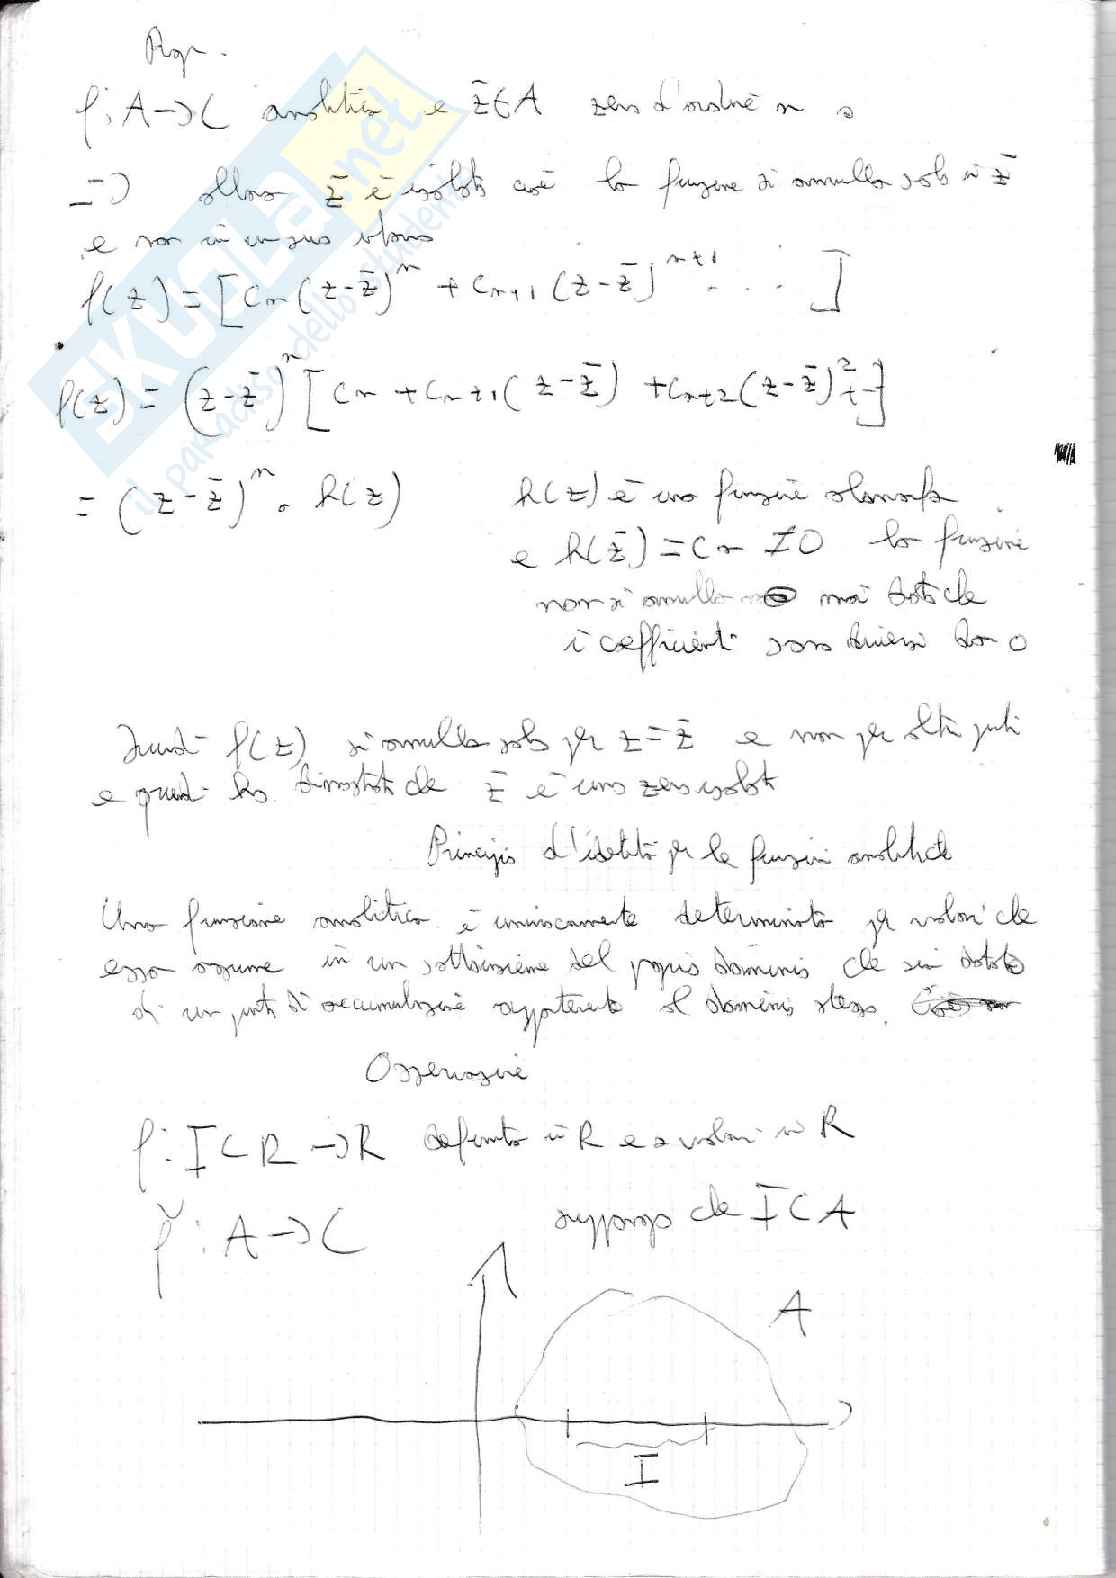 Prop.
f: A → C analitica e z̄ ∈ A zero d'ordine n
=> allora z̄ è isolato cioè la funzione si annulla solo in z̄
e non in un suo intorno
f(z) = [cn (z-z̄)^n + cn+1 (z-z̄)^n+1 . . . . ]
f(z) = (z-z̄)^n [cn + cn+1 (z-z̄) + cn+2 (z-z̄)^2 + -]
= (z-z̄)^n . h(z) h(z) è una funzione olomorfa
e h(z̄) = cn ≠ 0 la funzione
non si annulla mai dato che
i coefficienti sono diversi da 0
Quindi f(z) si annulla solo per z = z̄ e non per altri punti
e quindi ho dimostrato che z̄ è uno zero isolato
Principio d'identità per le funzioni analitiche
Una funzione analitica è univocamente determinata per valori che
essa assume in un sottoinsieme del proprio dominio che sia dotato
di un punto di accumulazione appartenente al dominio stesso.
Osservazione
f: I ⊂ R → R definita in R e a valori in R
f̌: A → C suppongo che I ⊂ A
A
I
SKUOLA.net
il paradiso dello studente